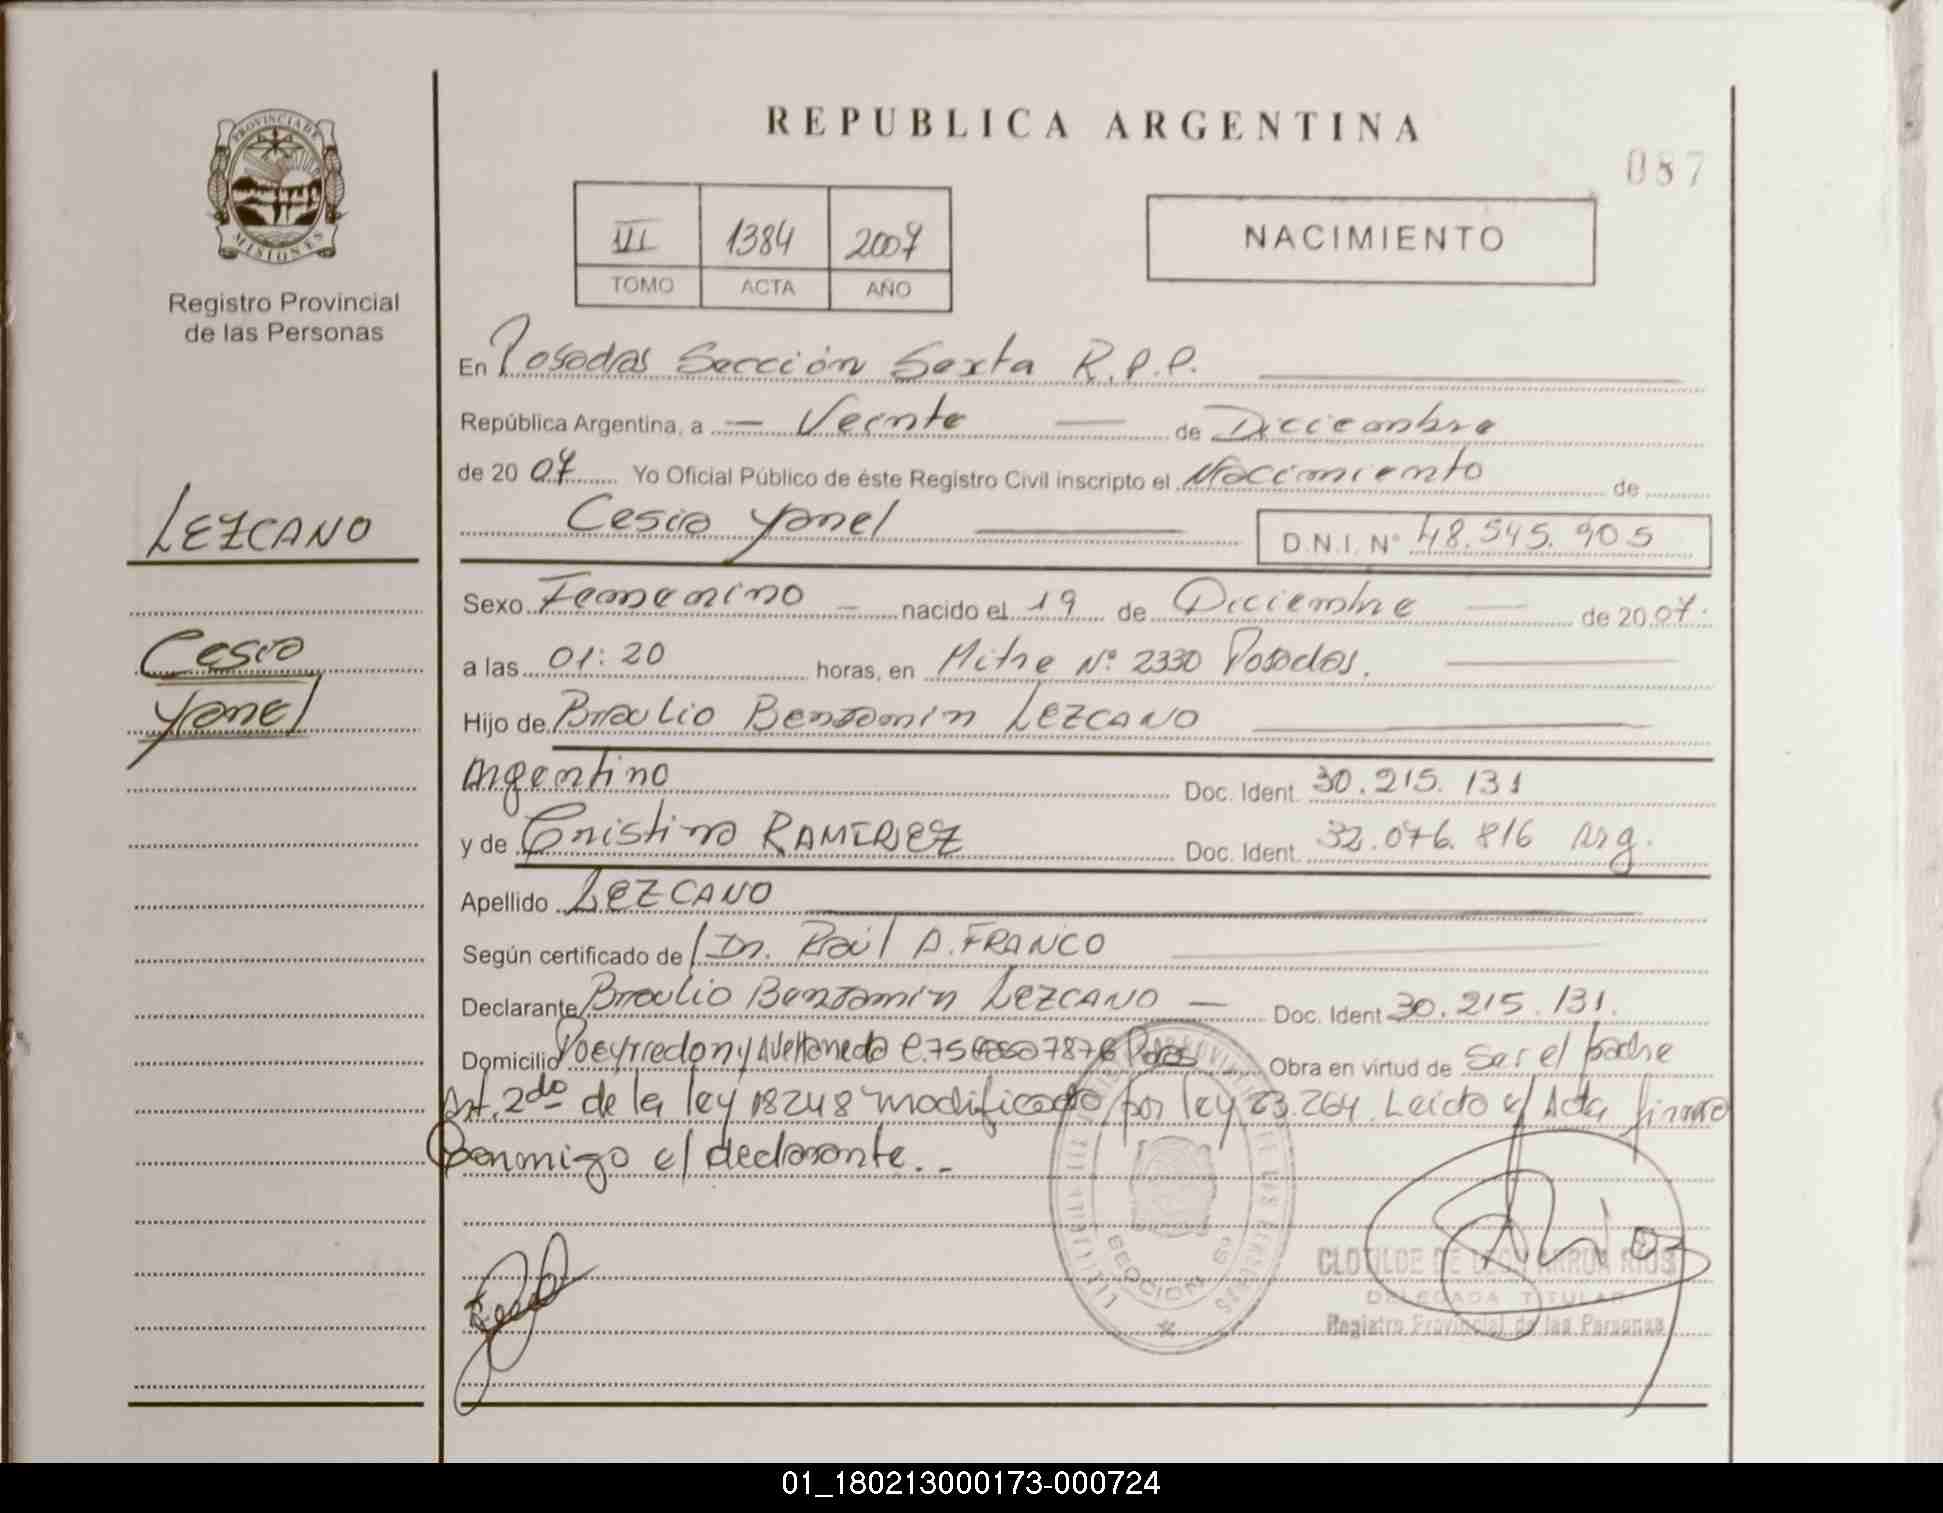 REPUBLICA ARGENTINA
087
PROVINCIA DE
MISIONES
Registro Provincial
de las Personas
III 1384 2007
TOMO ACTA AÑO
NACIMIENTO
En Posadas Sección Sexta R.P.P.
República Argentina, a — Veinte — de Diciembre
de 20 07 Yo Oficial Público de éste Registro Civil inscripto el Nacimiento de
LEZCANO
Cesia Yanel D.N.I. N° 48.545.905
Sexo Femenino — nacido el 19 de Diciembre — de 2007.
Cesia
Yanel
a las 01:20 horas, en Mitre N° 2330 Posadas.
Hijo de Braulio Benjamin LEZCANO
Argentino Doc. Ident. 30.215.131
y de Cristina RAMIREZ Doc. Ident. 32.076.816 Arg.
Apellido LEZCANO
Según certificado de Dr. Raúl A. FRANCO
Declarante Braulio Benjamin LEZCANO — Doc. Ident 30.215.131.
Domicilio Poeyrredon y Avellaneda C.75 Casa 7876 Obra en virtud de Ser el padre
Art. 2do de la ley 18248 modificado por ley 23.264. Leida el Acta firma
Conmigo el declarante..-
SECCION 6ª
CLOTILDE DE ARRUA RIOS
DELEGADA TITULAR
Registro Provincial de las Personas
01_180213000173-000724